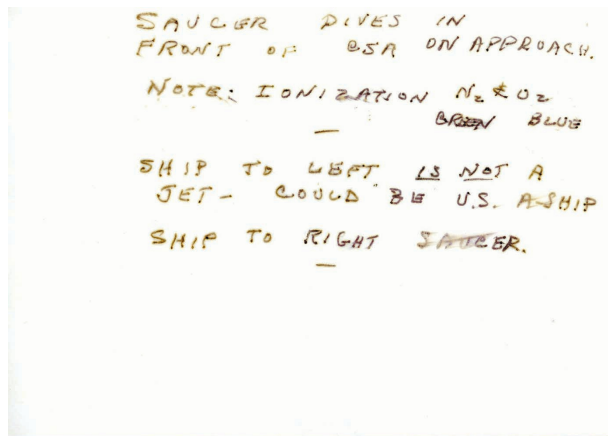 SAUCER DIVES IN
FRONT OF CSA ON APPROACH.
NOTE: IONIZATION N₂ & O₂
GREEN BLUE
—
SHIP TO LEFT IS NOT A
JET - COULD BE U.S. A-SHIP
SHIP TO RIGHT SAUCER.
—